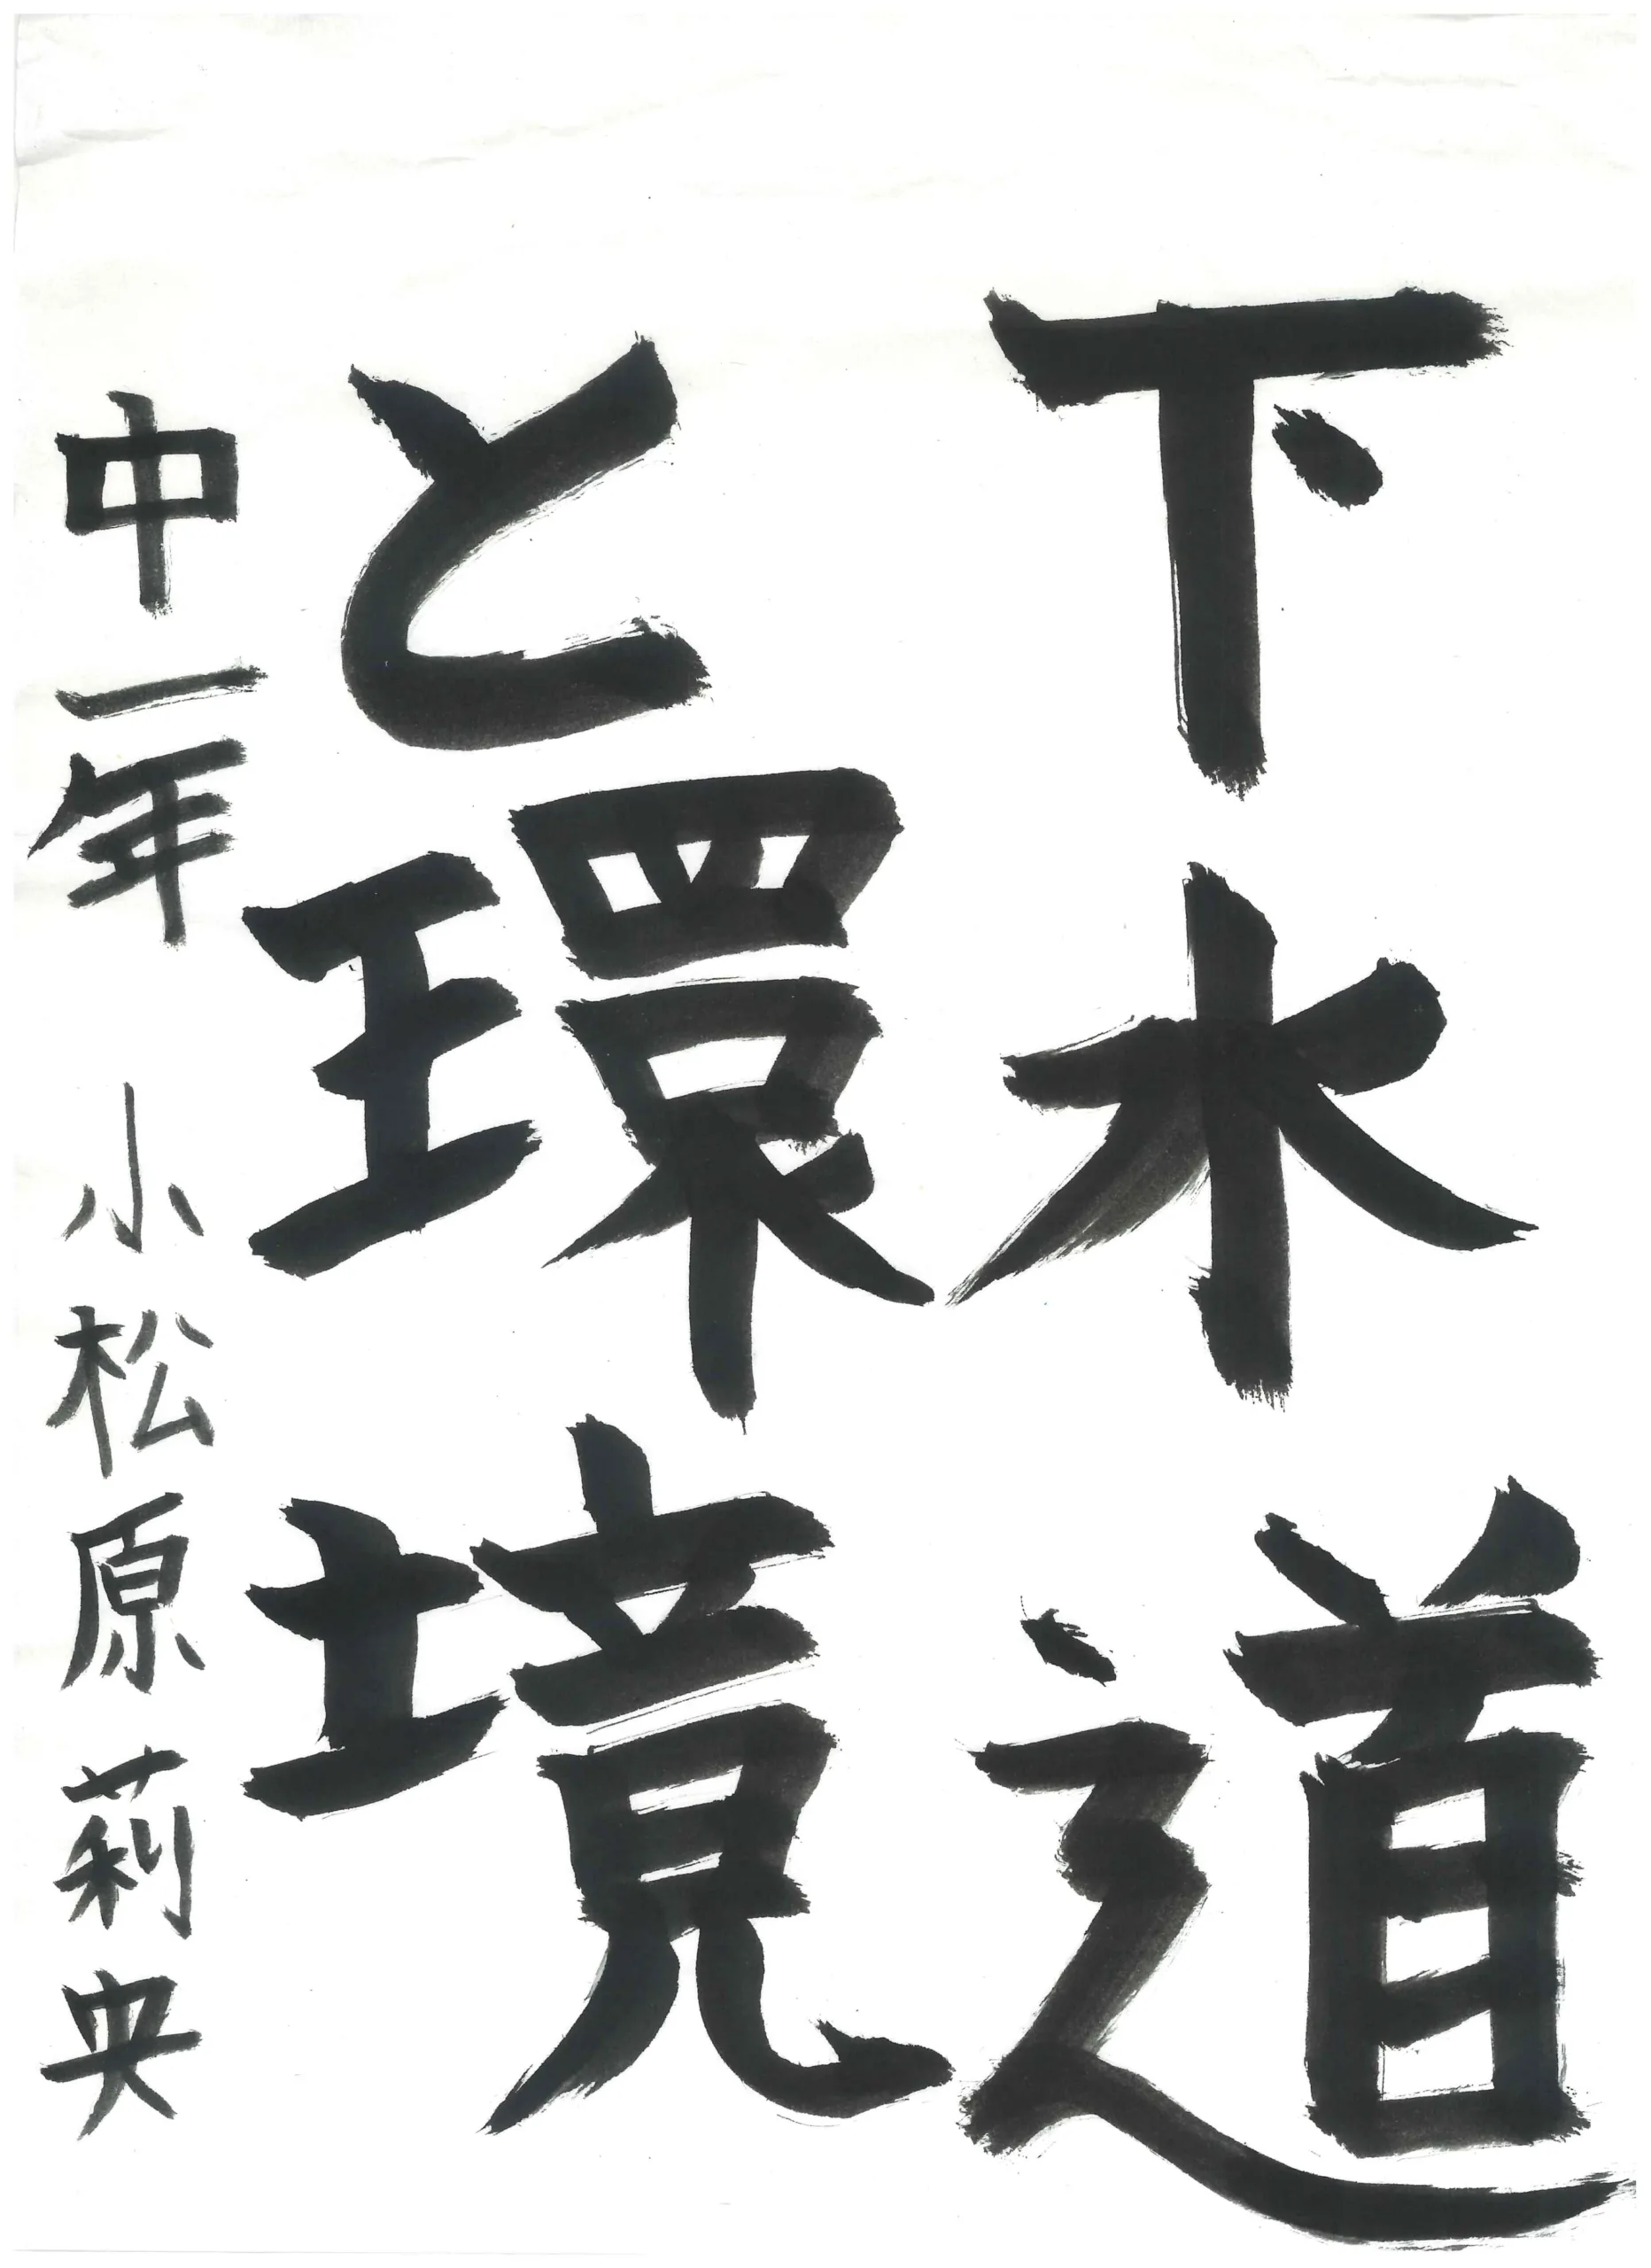 下水道
と環境
中一年 小松原莉央